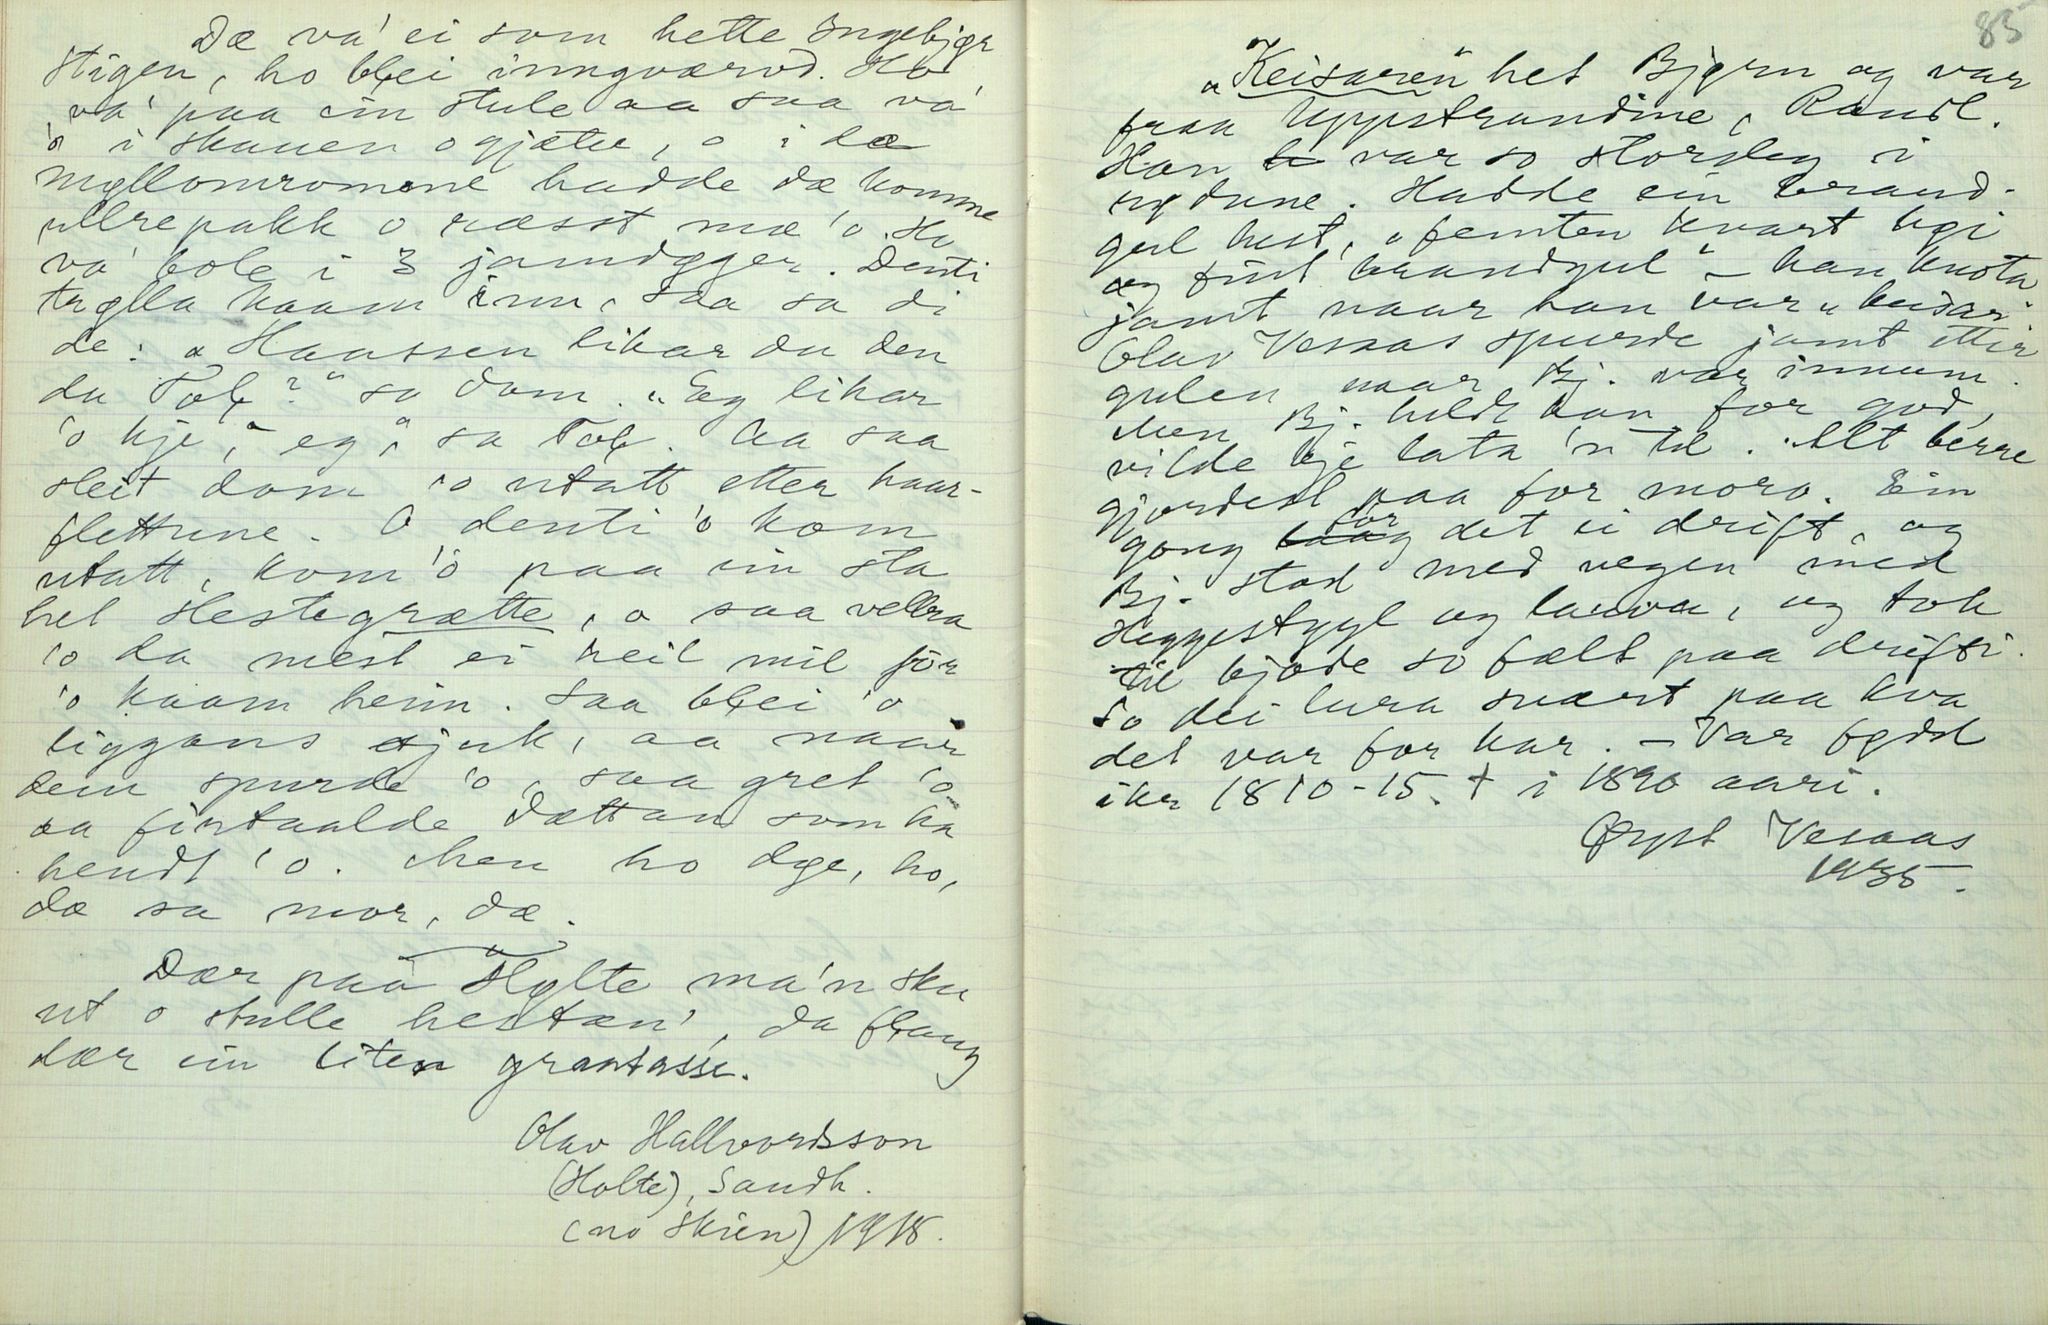 Dæ va' ei som hette Ingebjør
Stigen, ho blei inngværvd. Ho
va' paa ein stule aa saa va'
'o i skauen o gjætte, o i dæ
myllomromene hadde dæ komme
ullrepakk o ræsst mæ 'o. Ho
va' bole i 3 jamdøger. Denti
trølla kaam inn, saa sa di
de: „Haassen likar du den
du Tol?“ sa dom. „Eg likar
'o kje, eg“, sa Tol. Aa saa
sleit dom 'o utatt etter haar-
flettune. O denti 'o kom
utatt, kom 'o paa ein sta
het Hestegrætte, o saa vellra
'o da mest ei heil mil før
'o kaam heim. Saa blei 'o
liggans sjuk, aa naar
dem spurde 'o, saa gret 'o
aa fortaalde dættan som ha
hendt 'o. Men ho døe, ho,
dæ sa mor, dæ.
Dær paa Hølte ma'n sku
ut o stulle hestæn', da flaug
dær ein liten graatasse.
Olav Hallvordsson
(Holte), Sandh.
(no Skien) 1918.
85
„Keisaren“ het Bjørn og var
fraa Uppstrandine, Raudl.
Han var so storsleg i
ordune. Hadde ein brand-
gul hest, „femten kvart høi
og fint brandgul“ – han
jamt naar han var „keisar“
Olav Vesaas spurde jamt etter
gulen naar Bj. var innum.
Men Bj. heldt han for god,
vilde kje lata 'n til. Alt berre
gjordest paa for moro. Ein
gong for det ei drift, og
Bj. stod med vegen med
Heggestøyl og lauva, og tok
til bjode so fælt paa drifti.
So dei lura svært paa kva
det var for kar. – Var fødd
ikr 1810-15. † i 1890 aari.
Øyst Vesaas
1935.